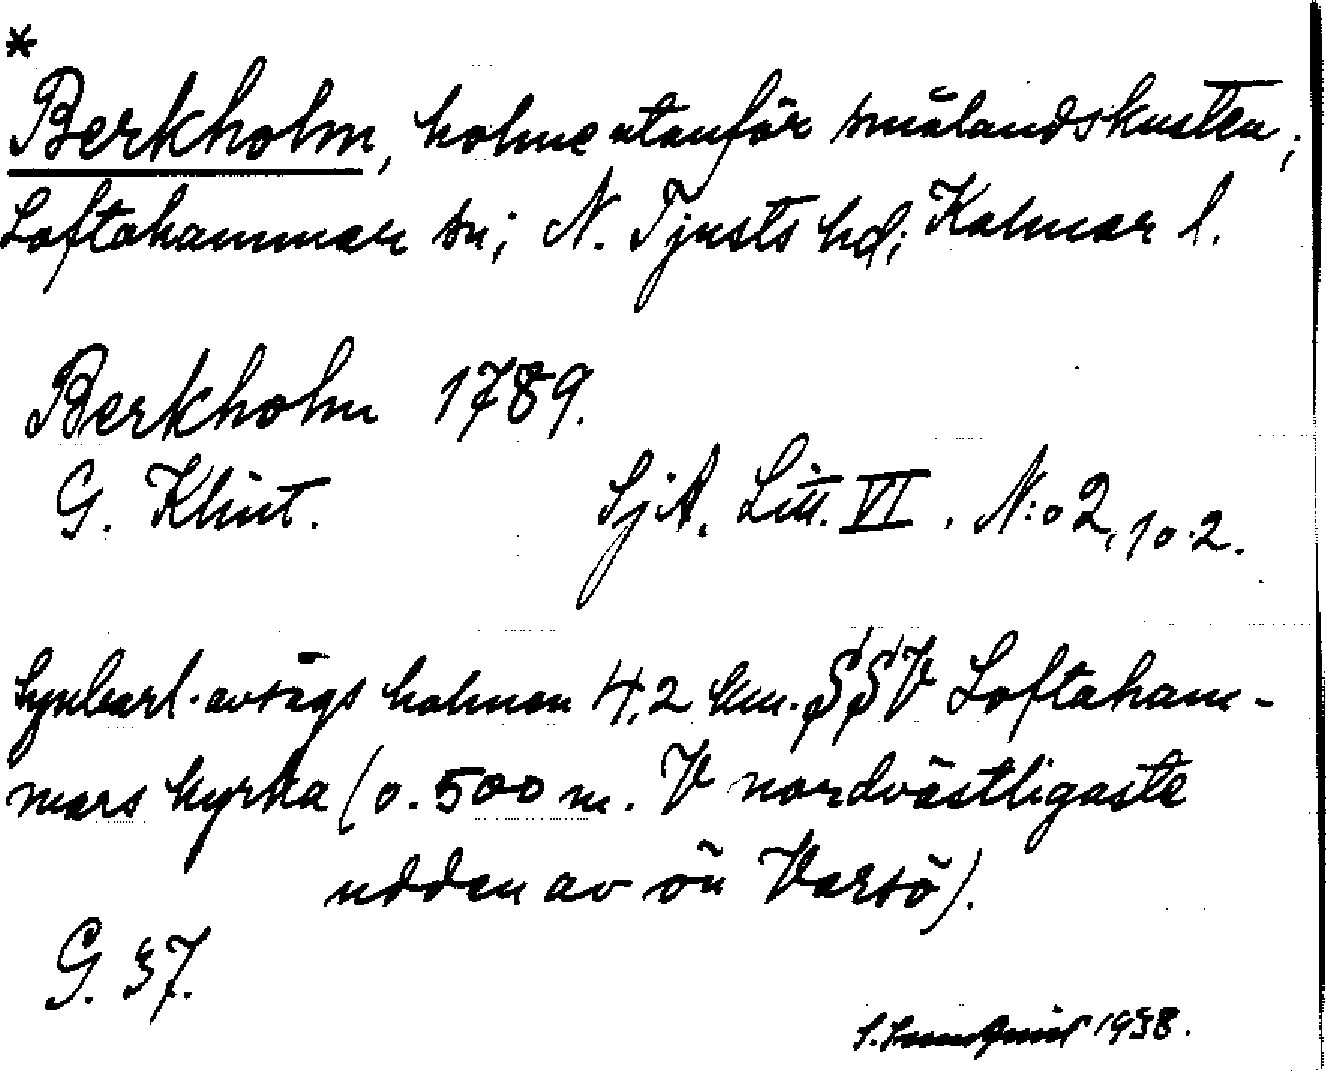 *
Berkholm, holme utanför smålandskusten;
Loftahammar sn; N. Tjusts hd; Kalmar l.
Berkholm 1789.
G. Klint. SjA. Litt. VI. N:o 2, 10.2.
Synbarl. avsågs holmen 4,2 km. SSV Loftaham-
mars kyrka (o. 500 m. V nordvästligaste
udden av ön Varsö).
G. 37.
1938.